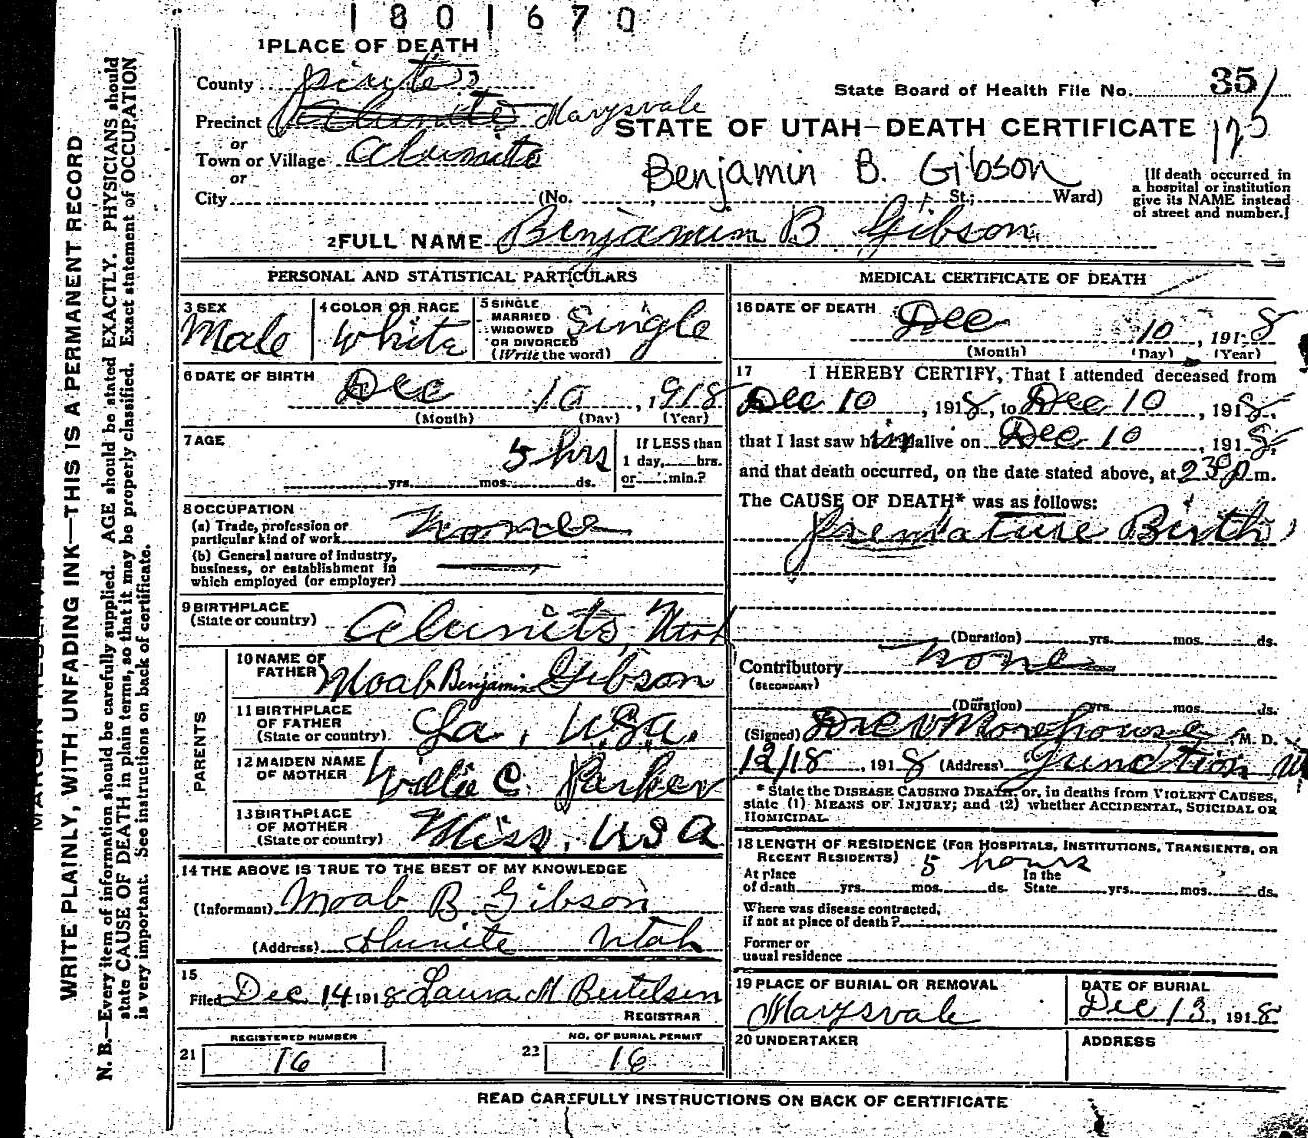 1801670
1 PLACE OF DEATH
County Piute
State Board of Health File No. 351
Precinct Marysvale
STATE OF UTAH—DEATH CERTIFICATE 125
or
Town or Village Alunite
or
Benjamin B. Gibson
City (No. , St.; Ward)
[If death occurred in
a hospital or institution
give its NAME instead
of street and number.]
2 FULL NAME Benjamin B Gibson
PERSONAL AND STATISTICAL PARTICULARS
3 SEX
Male
4 COLOR OR RACE
White
5 SINGLE
MARRIED
WIDOWED
OR DIVORCED
(Write the word)
Single
6 DATE OF BIRTH
Dec 10, 1918
(Month) (Day) (Year)
7 AGE
5 hrs
yrs. mos. ds.
If LESS than
1 day, hrs.
or min.?
8 OCCUPATION
(a) Trade, profession or
particular kind of work None
(b) General nature of industry,
business, or establishment in
which employed (or employer)
9 BIRTHPLACE
(State or country) Alunite, Utah
PARENTS
10 NAME OF
FATHER Moab Benjamin Gibson
11 BIRTHPLACE
OF FATHER
(State or country) La, USA.
12 MAIDEN NAME
OF MOTHER Willie C. Parker
13 BIRTHPLACE
OF MOTHER
(State or country) Miss, USA
14 THE ABOVE IS TRUE TO THE BEST OF MY KNOWLEDGE
(Informant) Moab B. Gibson
(Address) Alunite Utah
15
Filed Dec 14 1918 Laura M Bertelsen
REGISTRAR
REGISTERED NUMBER
21 16
NO. OF BURIAL PERMIT
22 16
MEDICAL CERTIFICATE OF DEATH
16 DATE OF DEATH
Dec 10, 1918
(Month) (Day) (Year)
17 I HEREBY CERTIFY, That I attended deceased from
Dec 10, 1918, to Dec 10, 1918,
that I last saw him alive on Dec 10, 1918,
and that death occurred, on the date stated above, at 230 p m.
The CAUSE OF DEATH* was as follows:
Premature Birth
(Duration) yrs. mos. ds.
Contributory None
(SECONDARY)
(Duration) yrs. mos. ds.
(Signed) Morehouse, M. D.
12/18, 1918 (Address) Junction
* State the DISEASE CAUSING DEATH or, in deaths from VIOLENT CAUSES,
state (1) MEANS OF INJURY; and (2) whether ACCIDENTAL, SUICIDAL OR
HOMICIDAL.
18 LENGTH OF RESIDENCE (FOR HOSPITALS, INSTITUTIONS, TRANSIENTS, OR
RECENT RESIDENTS) 5 hours
At place In the
of death yrs. mos. ds. State yrs. mos. ds.
Where was disease contracted,
if not at place of death?
Former or
usual residence
19 PLACE OF BURIAL OR REMOVAL
Marysvale
DATE OF BURIAL
Dec 13, 1918
20 UNDERTAKER
ADDRESS
READ CAREFULLY INSTRUCTIONS ON BACK OF CERTIFICATE
WRITE PLAINLY, WITH UNFADING INK—THIS IS A PERMANENT RECORD
N. B.—Every item of information should be carefully supplied. AGE should be stated EXACTLY. PHYSICIANS should
state CAUSE OF DEATH in plain terms, so that it may be properly classified. Exact statement of OCCUPATION
is very important. See instructions on back of certificate.